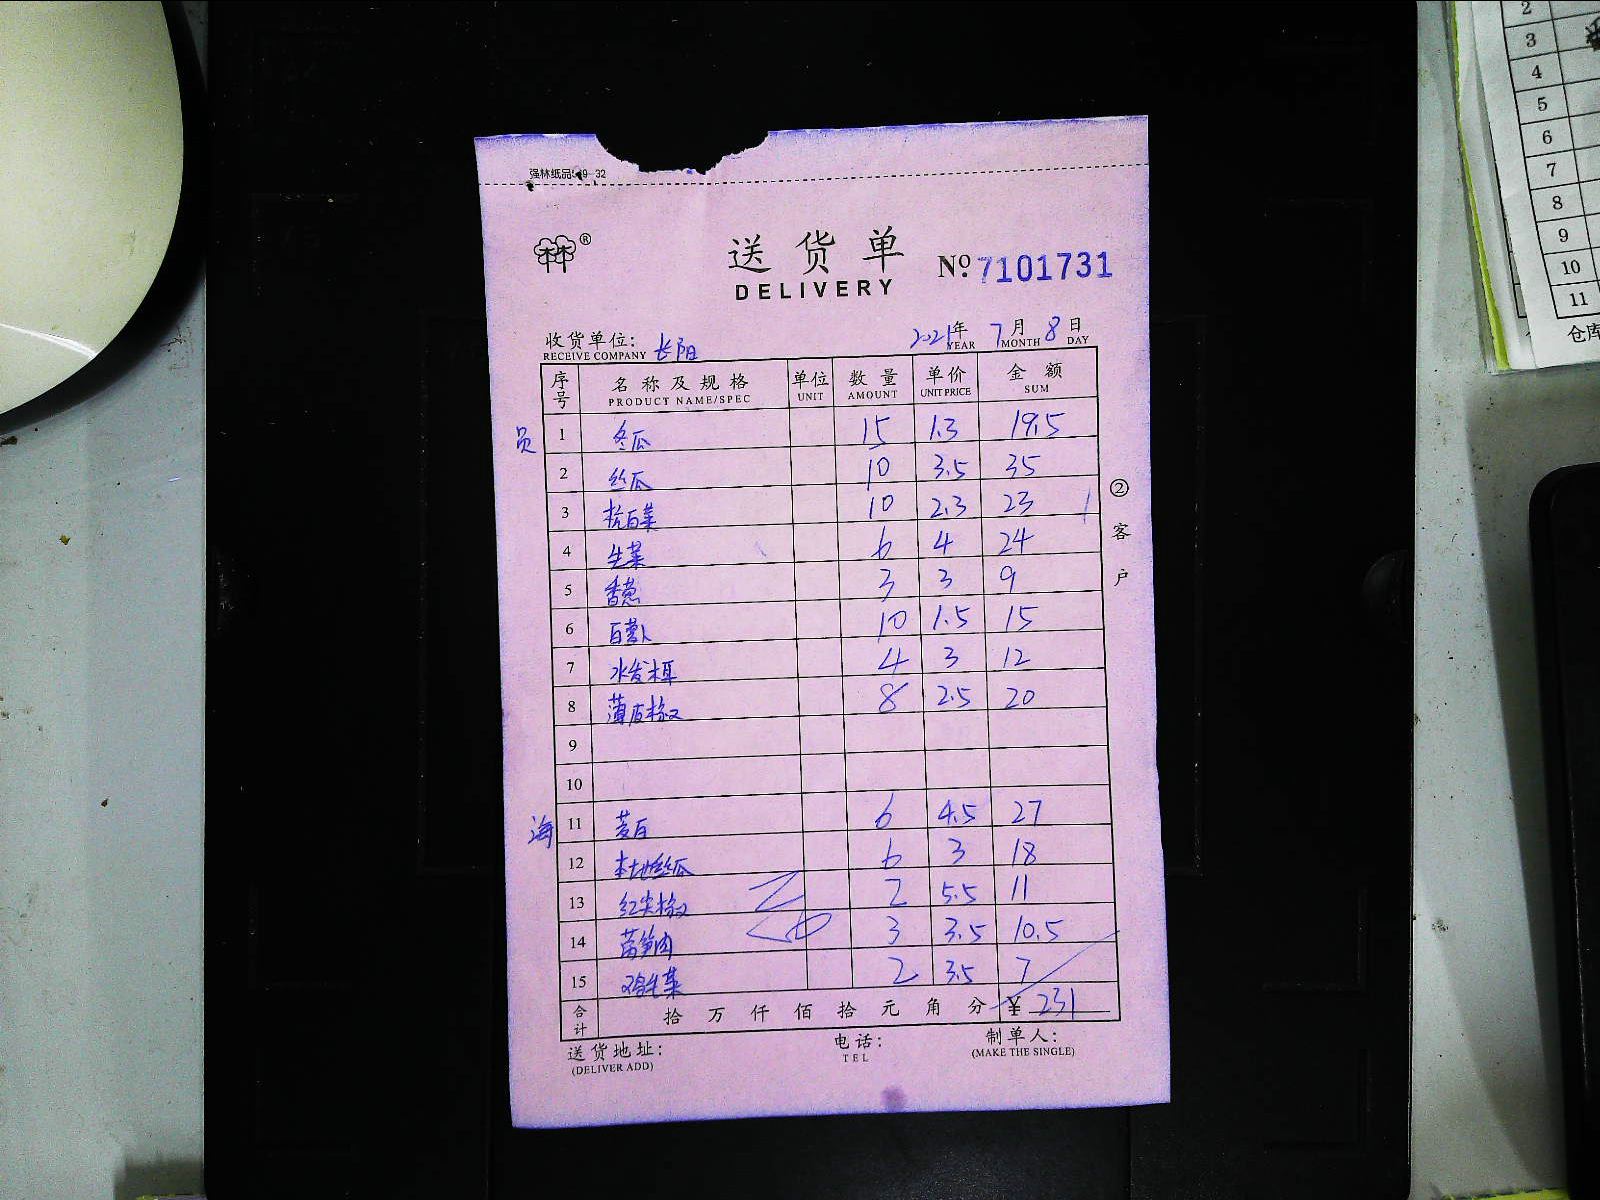 强林纸品 32
®
送货单
DELIVERY
No. 7101731
收货单位: 长阳 2021年 7月 8日
RECEIVE COMPANY YEAR MONTH DAY
序号 名称及规格 单位 数量 单价 金额
PRODUCT NAME/SPEC UNIT AMOUNT UNIT PRICE SUM
员 1 冬瓜 15 1.3 19.5
2 丝瓜 10 3.5 35
3 杭白菜 10 2.3 23
4 生菜 6 4 24
5 香葱 3 3 9
6 白萝卜 10 1.5 15
7 水发木耳 4 3 12
8 薄皮椒 8 2.5 20
9
10
海 11 茭白 6 4.5 27
12 本地丝瓜 6 3 18
13 红尖椒 2 5.5 11
14 莴笋肉 3 3.5 10.5
15 鸡毛菜 2 3.5 7
合计 拾 万 仟 佰 拾 元 角 分 ¥ 231
送货地址: 电话: 制单人:
(DELIVER ADD) TEL (MAKE THE SINGLE)
②客户
2
3
4
5
6
7
8
9
10
11
仓库